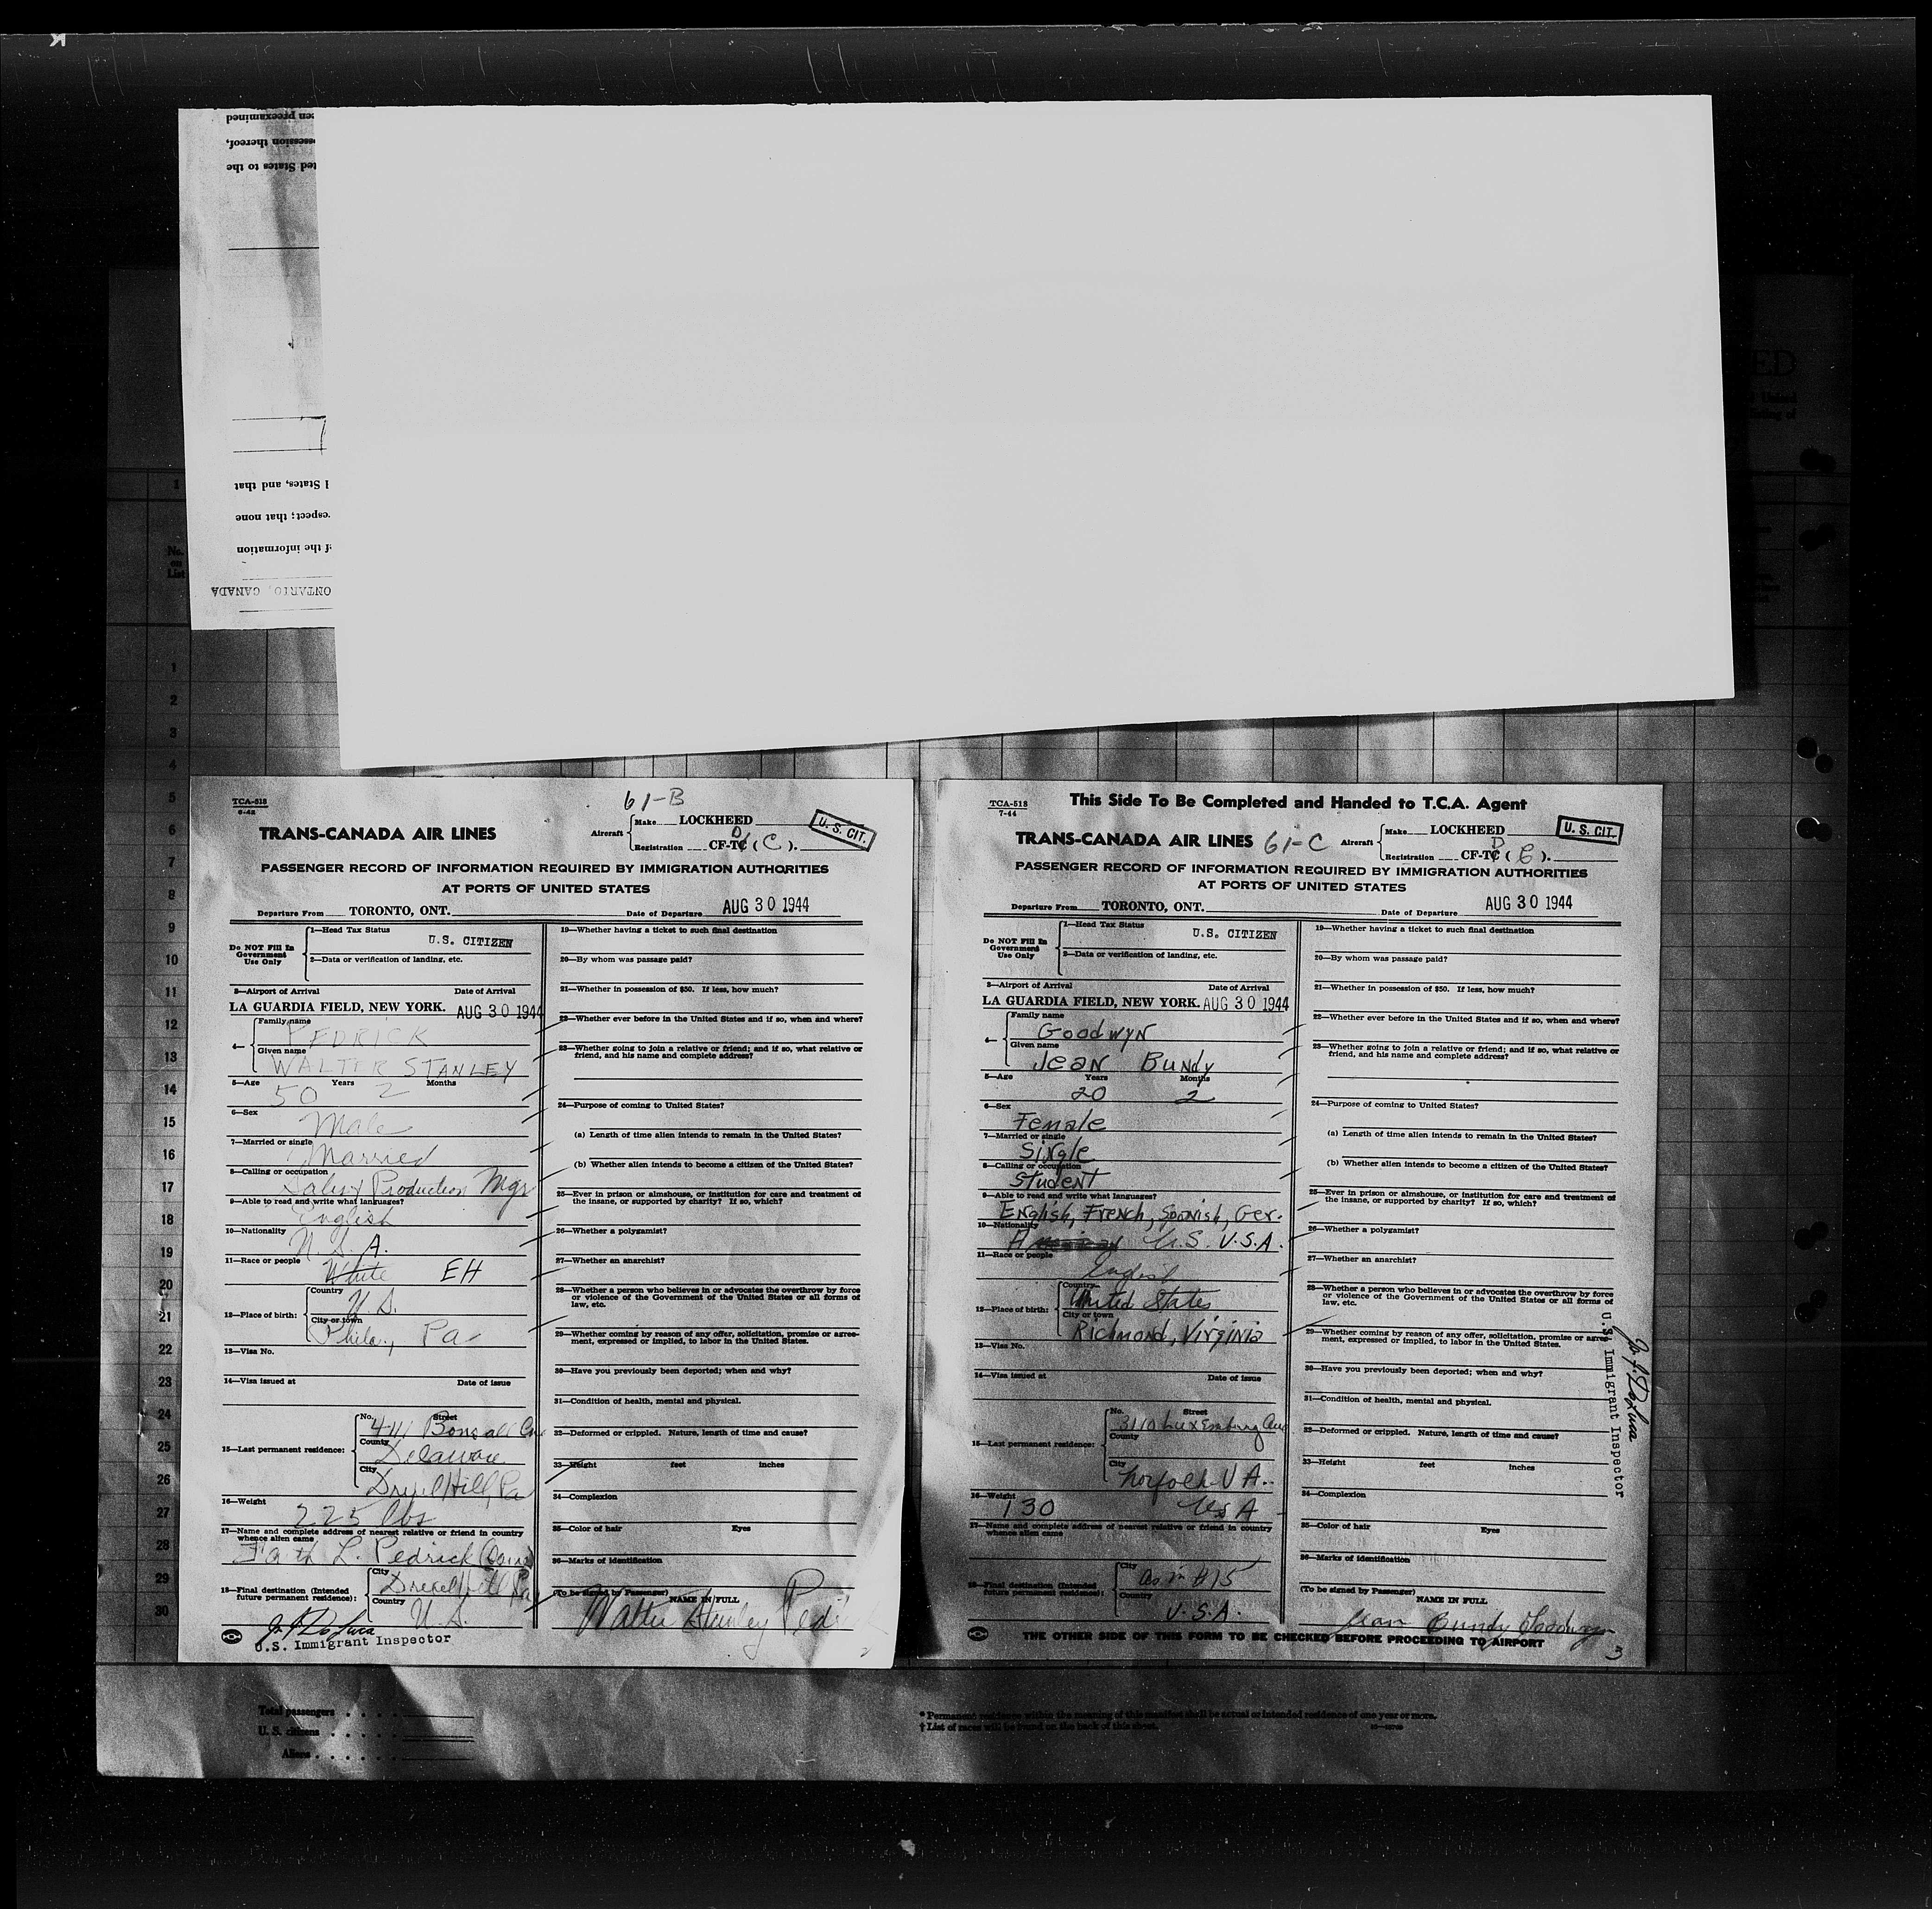 en preexamined
ssession thereof,
ted States to the
l States, and that
espect; that none
f the information
ONTARIO, CANADA
1
No. on List
1
2
3
4
5
6
7
8
9
10
11
12
13
14
15
16
17
18
19
20
21
22
23
24
25
26
27
28
29
30
TCA-518
61-B
TRANS-CANADA AIR LINES
Aircraft
Make LOCKHEED
Registration CF-TC (C).
D
U. S. CIT.
PASSENGER RECORD OF INFORMATION REQUIRED BY IMMIGRATION AUTHORITIES
AT PORTS OF UNITED STATES
Departure From TORONTO, ONT. Date of Departure AUG 30 1944
Do NOT Fill In
Government
Use Only
1—Head Tax Status
U.S. CITIZEN
2—Data or verification of landing, etc.
3—Airport of Arrival Date of Arrival
LA GUARDIA FIELD, NEW YORK. AUG 30 1944
4—
Family name
PEDRICK
Given name
WALTER STANLEY
5—Age Years Months
50 2
6—Sex
Male
7—Married or single
Married
8—Calling or occupation
Production Mgr
9—Able to read and write what languages?
English
10—Nationality
U. S. A.
11—Race or people
White EH
12—Place of birth:
Country
U.S.
City or town
Phila, Pa
13—Visa No.
14—Visa issued at Date of issue
15—Last permanent residence:
No. Street
441 Bonsall
County
Delaware
City
Drexel Hill, Pa
16—Weight
225 lbs
17—Name and complete address of nearest relative or friend in country
whence alien came
Faith L. Pedrick
18—Final destination (Intended
future permanent residence):
City
Drexel Hill Pa
Country
U.S.
U.S. Immigrant Inspector
19—Whether having a ticket to such final destination
20—By whom was passage paid?
21—Whether in possession of $50. If less, how much?
22—Whether ever before in the United States and if so, when and where?
23—Whether going to join a relative or friend; and if so, what relative or
friend, and his name and complete address?
24—Purpose of coming to United States?
(a) Length of time alien intends to remain in the United States?
(b) Whether alien intends to become a citizen of the United States?
25—Ever in prison or almshouse, or institution for care and treatment of
the insane, or supported by charity? If so, which?
26—Whether a polygamist?
27—Whether an anarchist?
28—Whether a person who believes in or advocates the overthrow by force
or violence of the Government of the United States or all forms of
law, etc.
29—Whether coming by reason of any offer, solicitation, promise or agree-
ment, expressed or implied, to labor in the United States.
30—Have you previously been deported; when and why?
31—Condition of health, mental and physical.
32—Deformed or crippled. Nature, length of time and cause?
33—Height feet inches
34—Complexion
35—Color of hair Eyes
36—Marks of identification
(To be signed by Passenger)
NAME IN FULL
Walter Stanley Pedrick
2
TCA-518
7-44
This Side To Be Completed and Handed to T.C.A. Agent
TRANS-CANADA AIR LINES 61-C
Aircraft
Make LOCKHEED
Registration CF-TC ( ).
D
U. S. CIT.
PASSENGER RECORD OF INFORMATION REQUIRED BY IMMIGRATION AUTHORITIES
AT PORTS OF UNITED STATES
Departure From TORONTO, ONT. Date of Departure AUG 30 1944
Do NOT Fill In
Government
Use Only
1—Head Tax Status
U.S. CITIZEN
2—Data or verification of landing, etc.
3—Airport of Arrival Date of Arrival
LA GUARDIA FIELD, NEW YORK. AUG 30 1944
4—
Family name
Goodwyn
Given name
Jean Bundy
5—Age Years Months
20 2
6—Sex
Female
7—Married or single
Single
8—Calling or occupation
Student
9—Able to read and write what languages?
English, French, Spanish, Ger.
10—Nationality
U.S. U.S.A.
11—Race or people
English
12—Place of birth:
Country
United States
City or town
Richmond, Virginia
13—Visa No.
14—Visa issued at Date of issue
15—Last permanent residence:
No. Street
3110 Luxemburg Ave
County
City
Norfolk VA.
USA
16—Weight
130
17—Name and complete address of nearest relative or friend in country
whence alien came
18—Final destination (Intended
future permanent residence):
City
as in #15
Country
U.S.A.
19—Whether having a ticket to such final destination
20—By whom was passage paid?
21—Whether in possession of $50. If less, how much?
22—Whether ever before in the United States and if so, when and where?
23—Whether going to join a relative or friend; and if so, what relative or
friend, and his name and complete address?
24—Purpose of coming to United States?
(a) Length of time alien intends to remain in the United States?
(b) Whether alien intends to become a citizen of the United States?
25—Ever in prison or almshouse, or institution for care and treatment of
the insane, or supported by charity? If so, which?
26—Whether a polygamist?
27—Whether an anarchist?
28—Whether a person who believes in or advocates the overthrow by force
or violence of the Government of the United States or all forms of
law, etc.
29—Whether coming by reason of any offer, solicitation, promise or agree-
ment, expressed or implied, to labor in the United States.
30—Have you previously been deported; when and why?
31—Condition of health, mental and physical.
32—Deformed or crippled. Nature, length of time and cause?
33—Height feet inches
34—Complexion
35—Color of hair Eyes
36—Marks of identification
(To be signed by Passenger)
NAME IN FULL
Jean Bundy Goodwyn
THE OTHER SIDE OF THIS FORM TO BE CHECKED BEFORE PROCEEDING TO AIRPORT
3
U.S. Immigrant Inspector
Total passengers
U. S. citizens
Aliens
* Permanent residence within the meaning of this manifest shall be actual or intended residence of one year or more.
† List of races will be found on the back of this sheet.